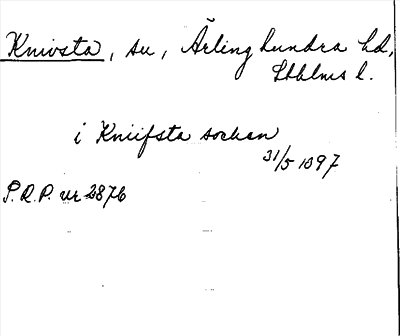 Knivsta, sn, Ärlinghundra hd,
Sthlms l.
i Kniifsta sockan
31/5 1397
P.R.P. nr 2876